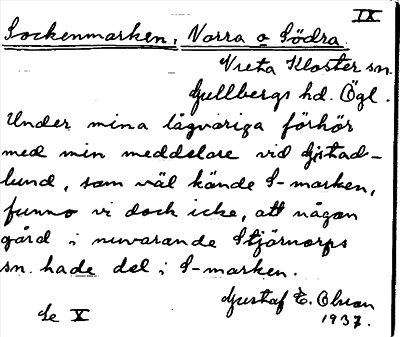 IX
Sockenmarken, Norra o Södra.
Vreta Kloster sn.
Gullbergs hd. Ögl.
Under mina lågvariga förhör
med min meddelare vid
lund, som väl kände S-marken,
funno vi dock icke, att någon
gård i nuvarande Stjärnorps
sn. hade del i S-marken.
Gustaf E. Olson
1937.
Se X